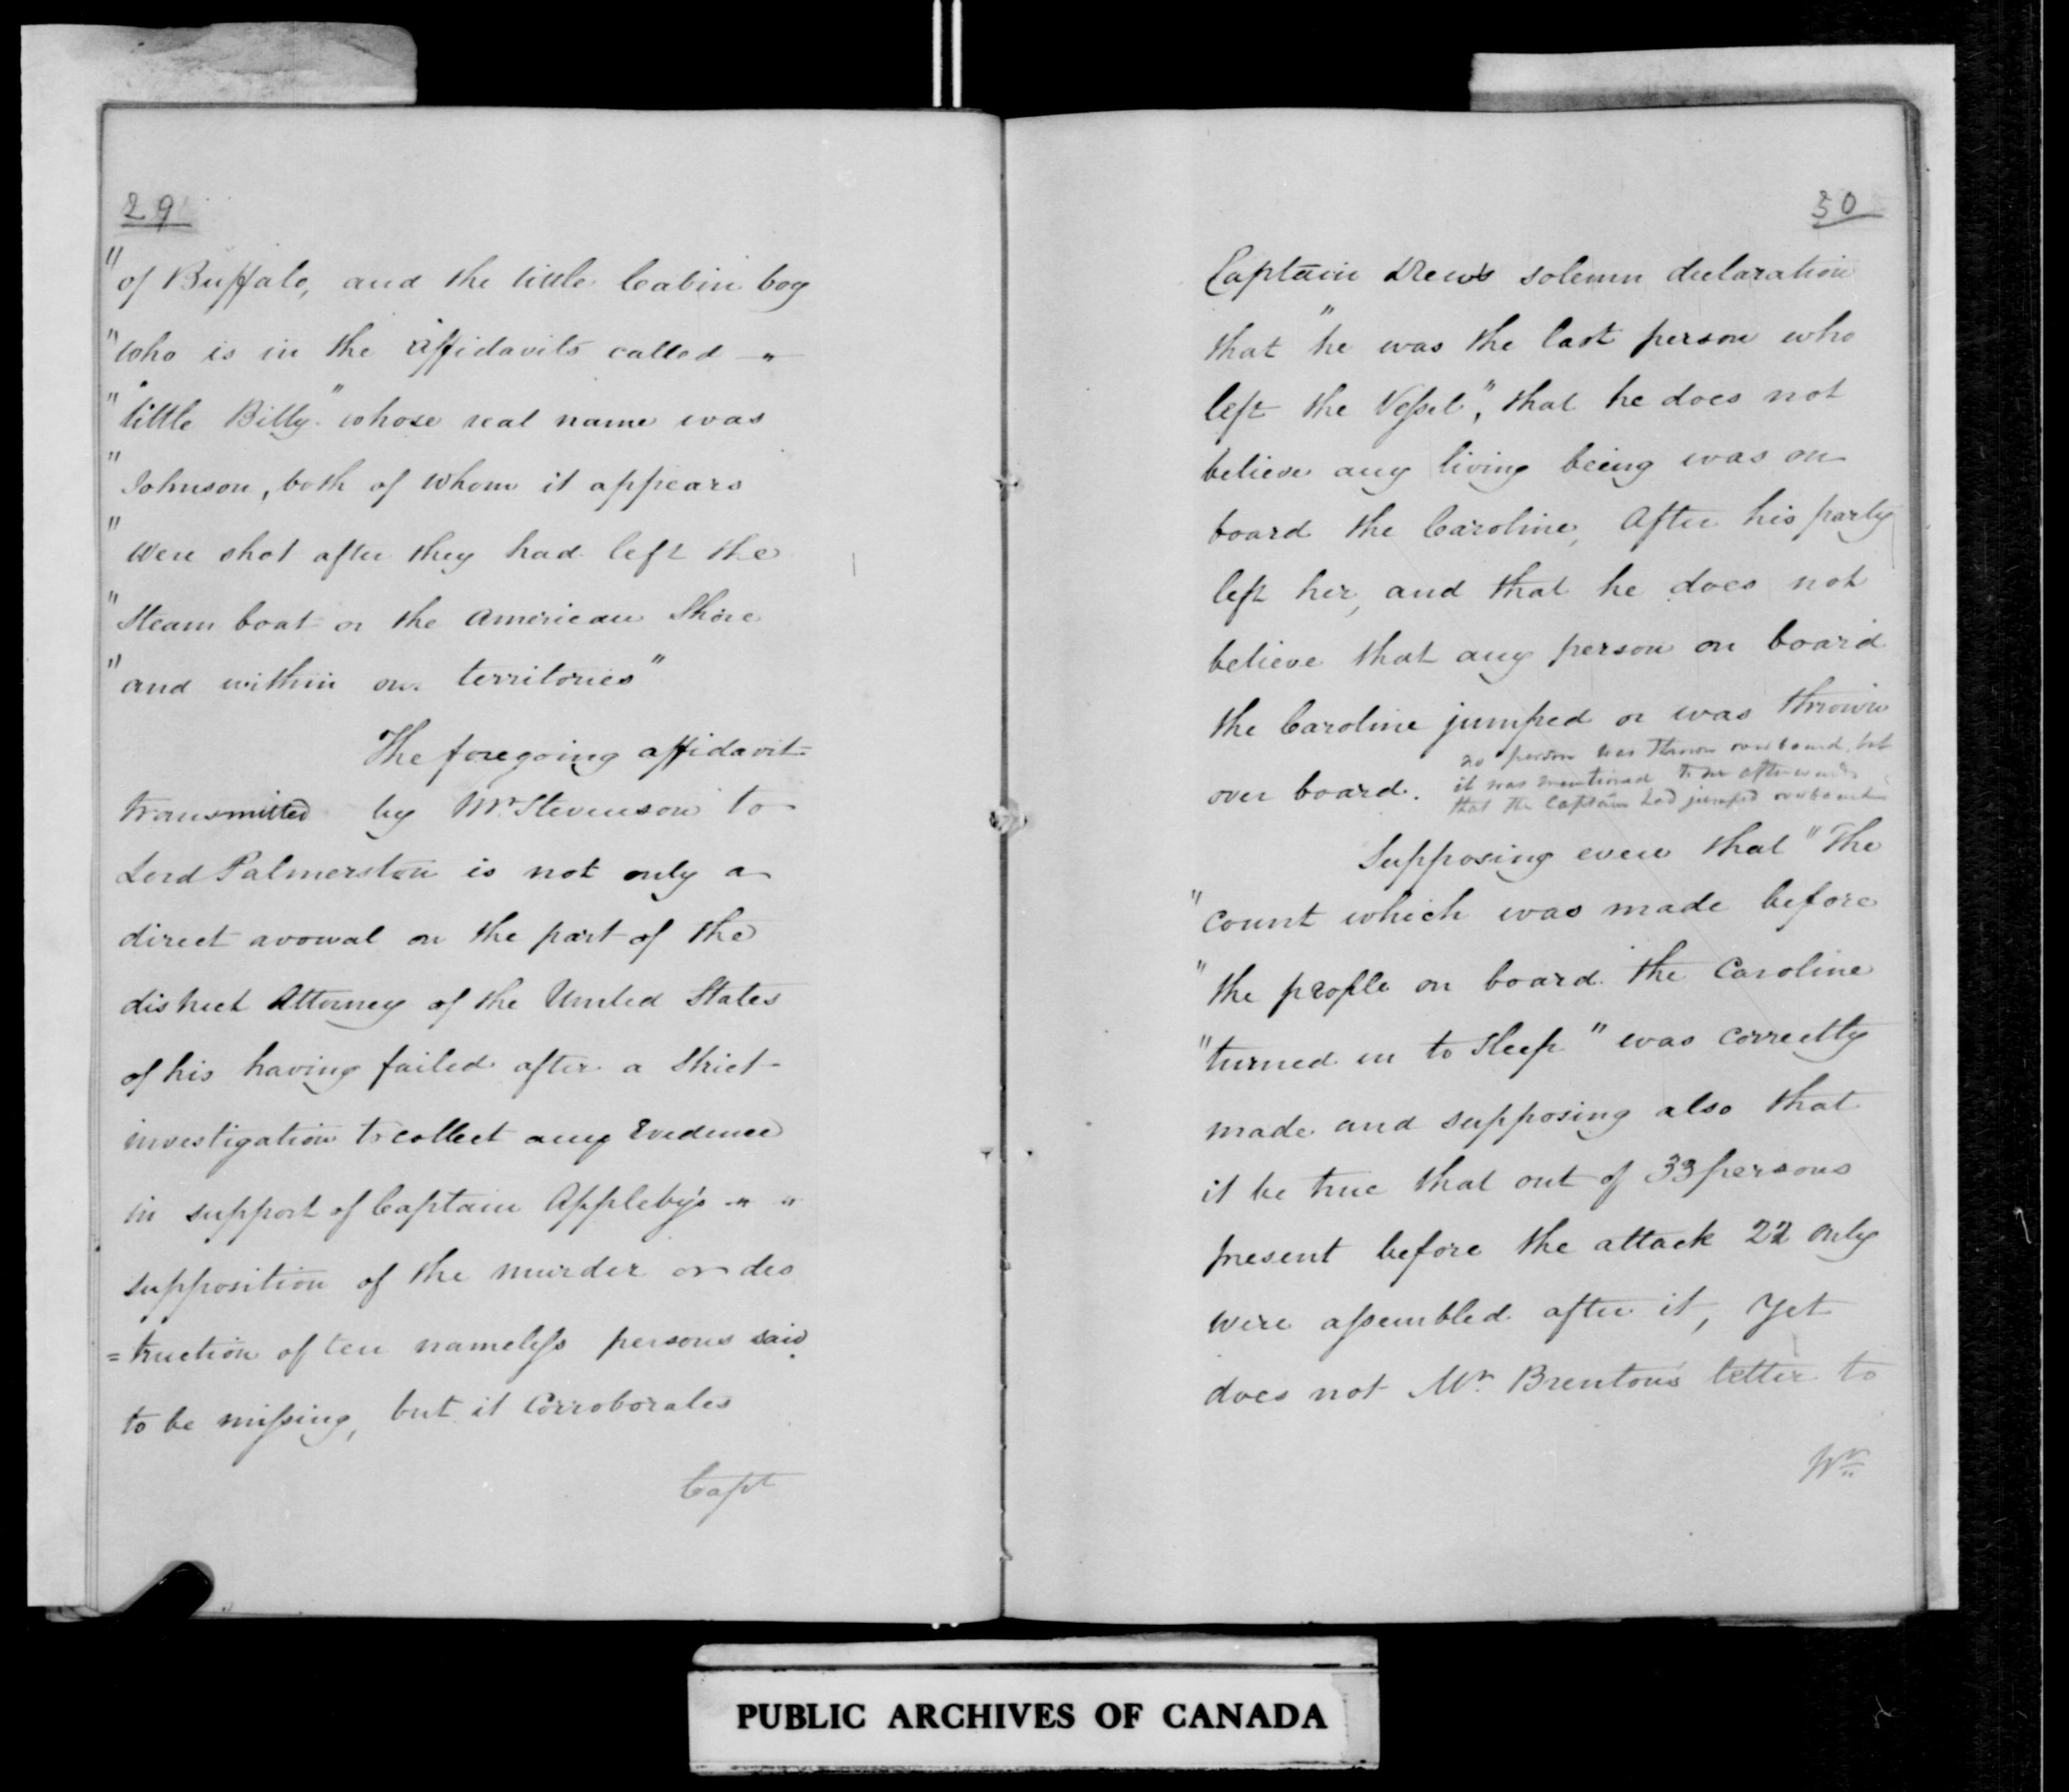 29
"of Buffalo, and the little Cabin boy
"who is in the affidavits called "
""little Billy" whose real name was
"Johnson, both of whom it appears
"were shot after they had left the
"Steam boat on the American Shore
"and within our territories"
The foregoing affidavit
transmitted by Mr. Stevenson to
Lord Palmerston is not only a
direct avowal on the part of the
district Attorney of the United States
of his having failed after a strict
investigation to collect any Evidence
in support of Captain Appleby's " "
supposition of the murder or des
=truction of ten nameless persons said
to be missing, but it corroborates
Capt
30
Captain Drew's solemn declaration
that "he was the last person who
left the Vessel", that he does not
believe any living being was on
board the Caroline, After his party
left her, and that he does not
believe that any person on board
the Caroline jumped or was thrown
over board.
no person was thrown overboard, but
it was mentioned to me afterwards
that the Captain had jumped overboard
Supposing even that "The
"count which was made before
"the people on board the Caroline
"turned in to sleep" was correctly
made and supposing also that
it be true that out of 33 persons
present before the attack 22 only
were assembled after it, yet
does not Mr. Brenton's letter to
PUBLIC ARCHIVES OF CANADA